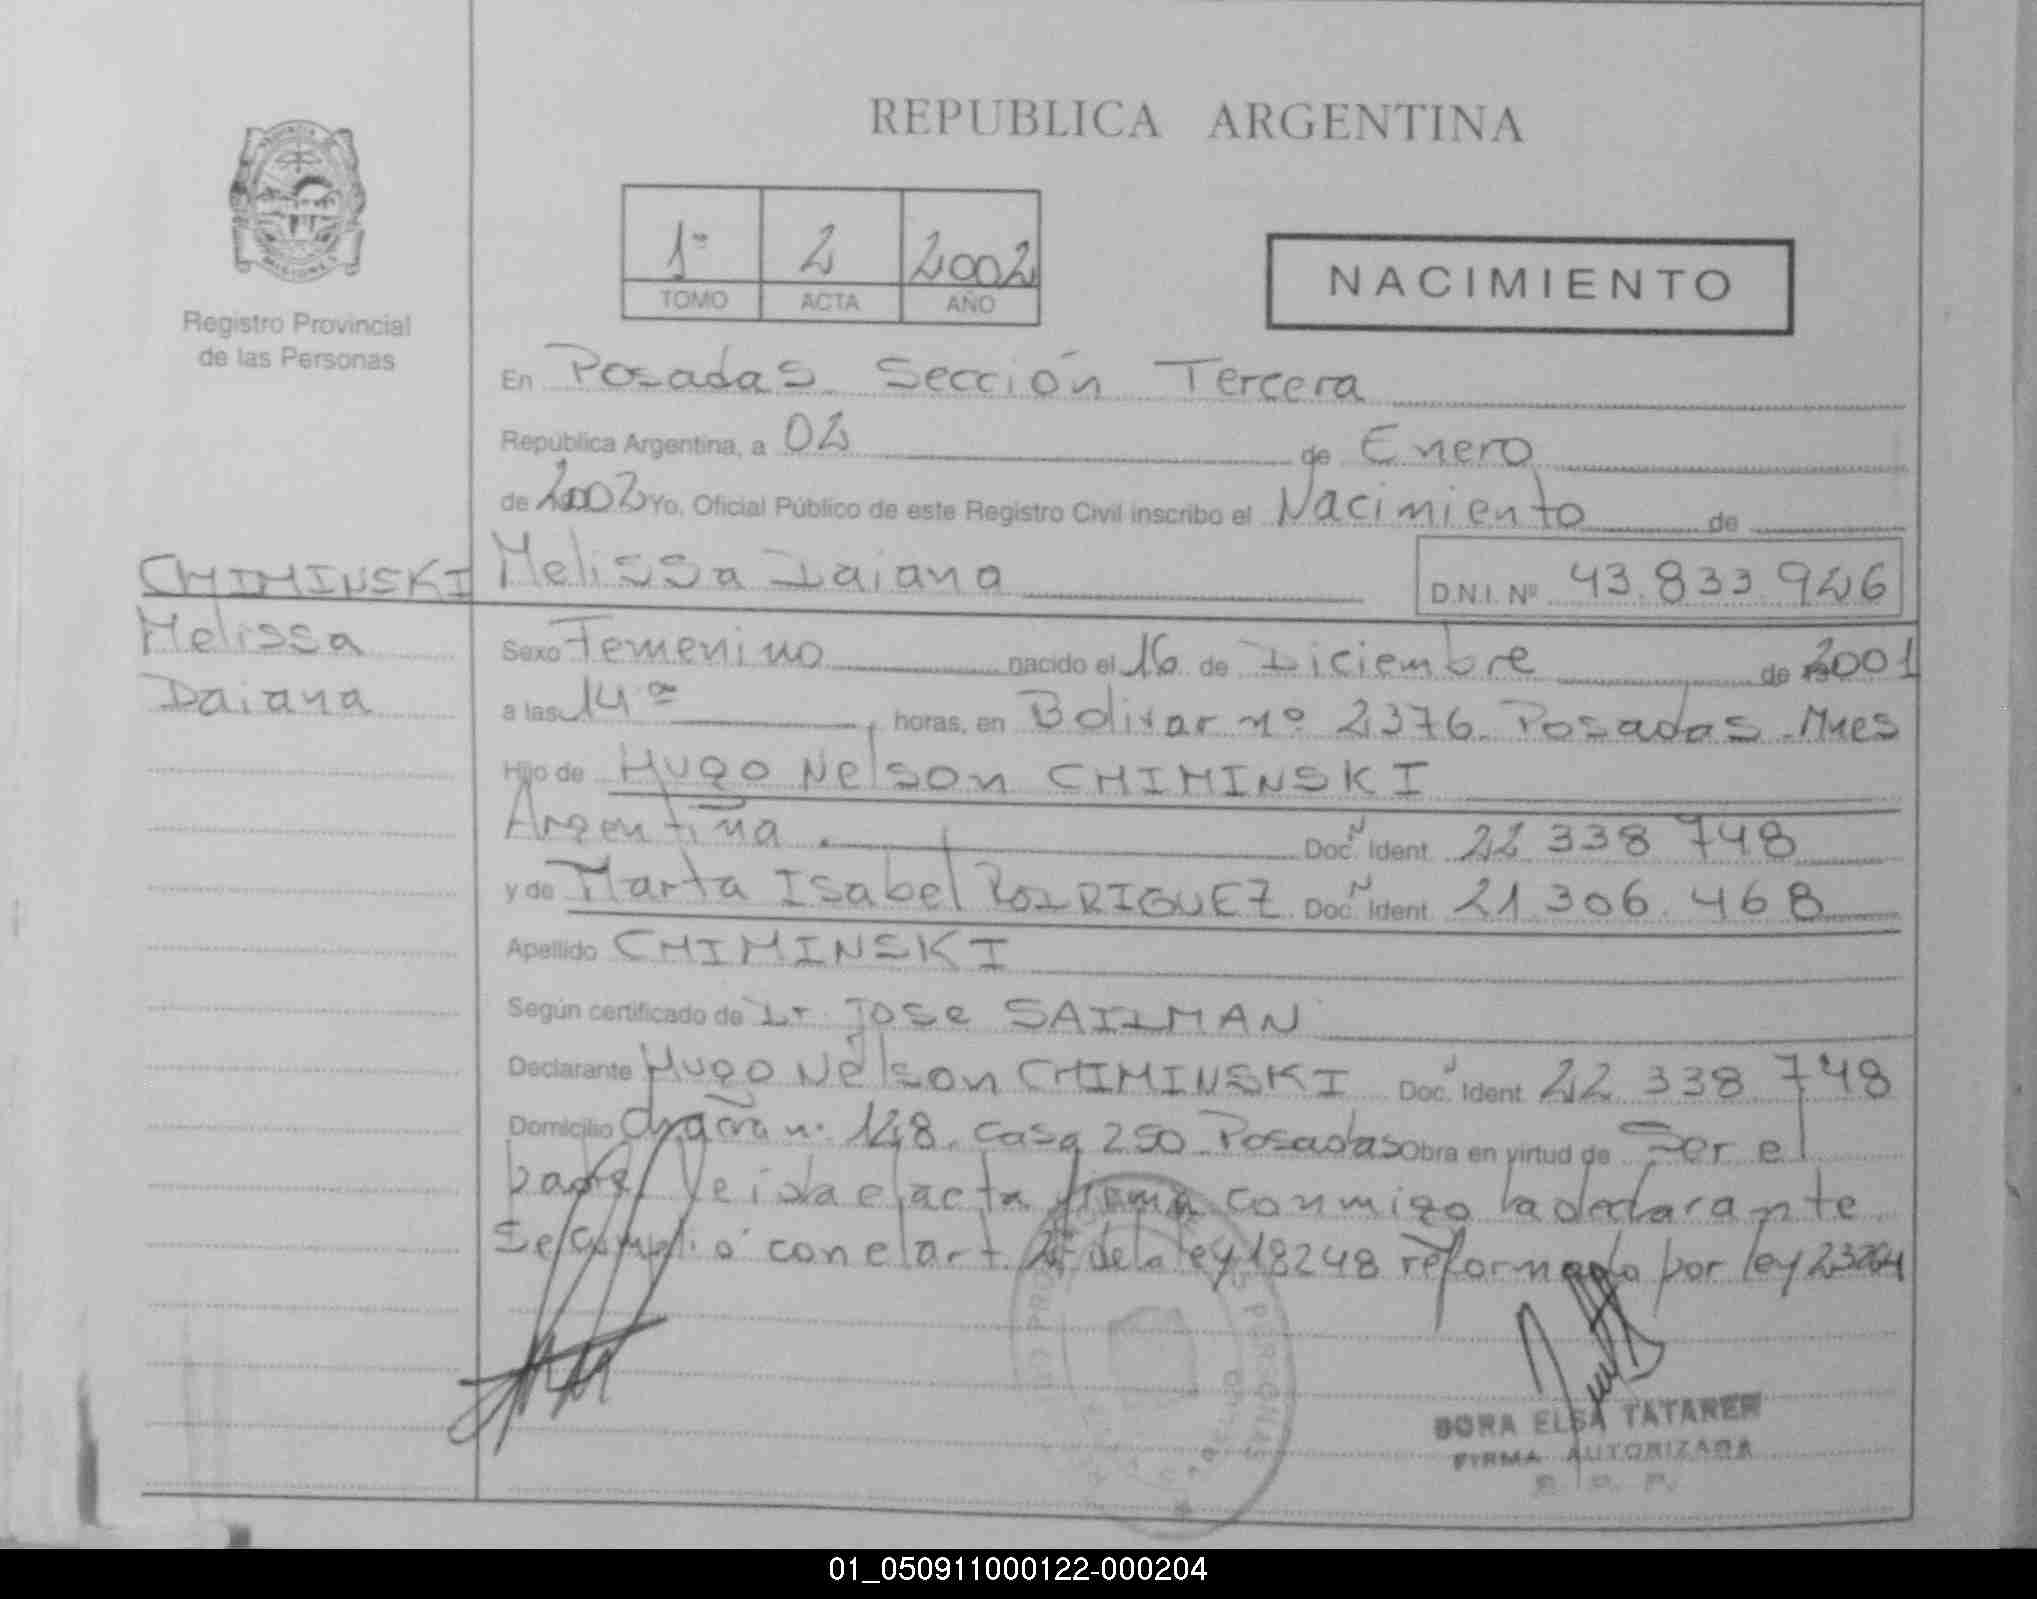 REPUBLICA ARGENTINA
PROVINCIA
MISIONES
Registro Provincial
de las Personas
1º 2 2002
TOMO ACTA AÑO
NACIMIENTO
En Posadas Sección Tercera
República Argentina, a 02 de Enero
de 2002 Yo, Oficial Público de este Registro Civil inscribo el Nacimiento de
CHIMINSKI Melissa Daiana D.N.I. Nº 43.833.926
Melissa
Daiana
Sexo Femenino nacido el 16 de Diciembre de 2001
a las 14 horas, en Bolivar nº 2376. Posadas - Mnes
Hijo de Hugo Nelson CHIMINSKI
Argentina. Doc. Ident. 22 338 748
y de Marta Isabel RODRIGUEZ Doc. Ident. 21 306 468
Apellido CHIMINSKI
Según certificado de Dr. Jose SAIDMAN
Declarante Hugo Nelson CHIMINSKI Doc. Ident. 22 338 748
Domicilio nº 148. Casa 250 Posadas Obra en virtud de Ser el
padre Leida el acta firma conmigo la declarante
Se cumplió con el art. 2º de la ley 18248 reformado por ley 23264
ELSA TATAREN
FIRMA AUTORIZADA
R. P. P.
01_050911000122-000204